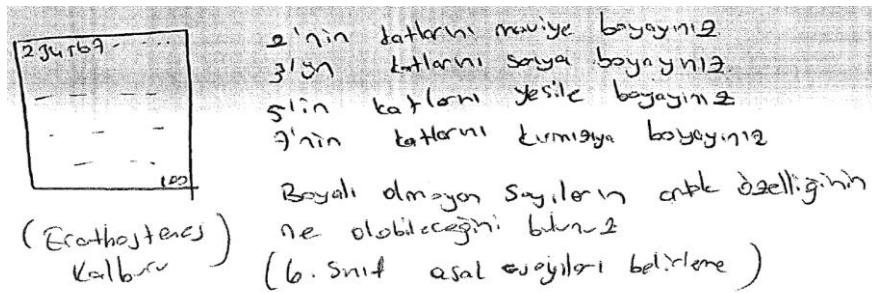 1234567- ....
100
(Erathostenes)
Kalburu
2'nin katlarını maviye boyayınız
3'ün katlarını sarıya boyayınız.
5'in katlarını yeşile boyayınız
7'nin katlarını kırmızıya boyayınız
Boyalı olmayan sayıların ortak özelliğinin
ne olabileceğini bulunuz
(6. Sınıf asal sayıları belirleme)